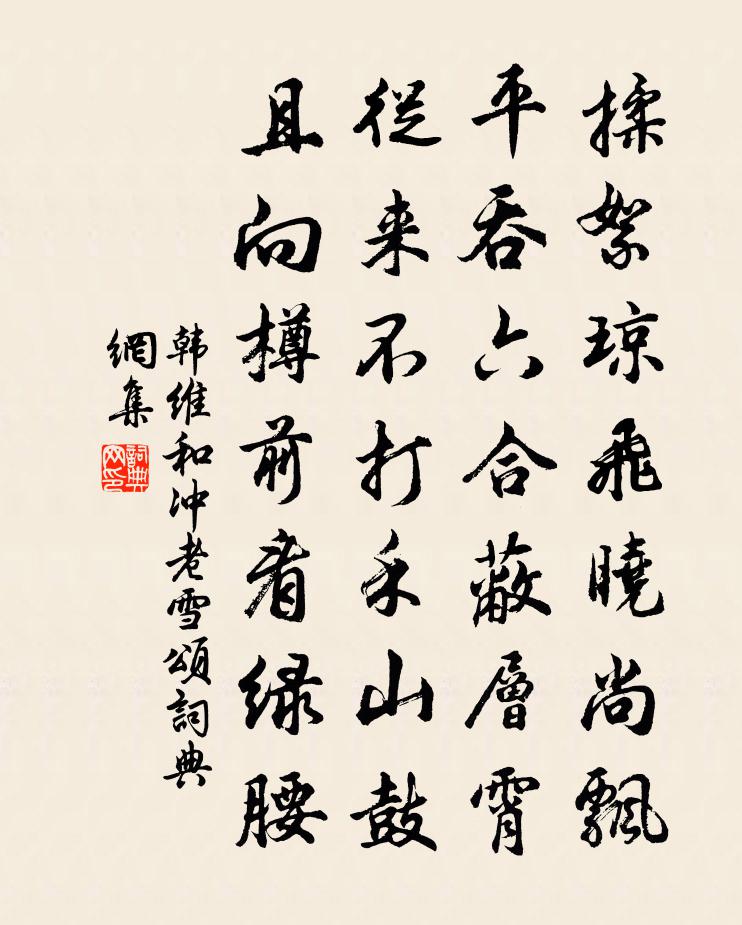 揉絮琼飛曉尚飄
平吞六合蔽層霄
從来不打禾山鼓
且向樽前看绿腰
韩维和冲老雪頌詞典
網集
詞典
网印